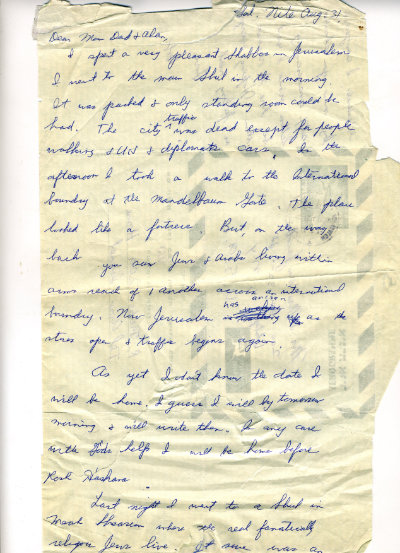 Sat. Nite Aug. 31
Dear Mom Dad & Alan,
I spent a very pleasant Shabbos in Jerusalem
I went to the main Shul in the morning
It was packed & only standing room could be
had. The city traffic was dead except for people
walking & UN & diplomats cars. In the
afternoon I took a walk to the International
boundry at the Mandelbaum Gate. The place
looked like a fortress. But, on the way
back you saw Jews & Arabs living within
arms reach of 1 another across an international
boundry. Now Jerusalem has arisen as the
stores open & traffic begins again.
As yet I don't know the date I
will be home. I guess I will by tomorrow
morning & will write then. In any case
with Gods help I will be home before
Rosh Hashana.
Last night I went to a Shul in
Meah Shearim where the real fanatically
religious Jews live. It sure was an